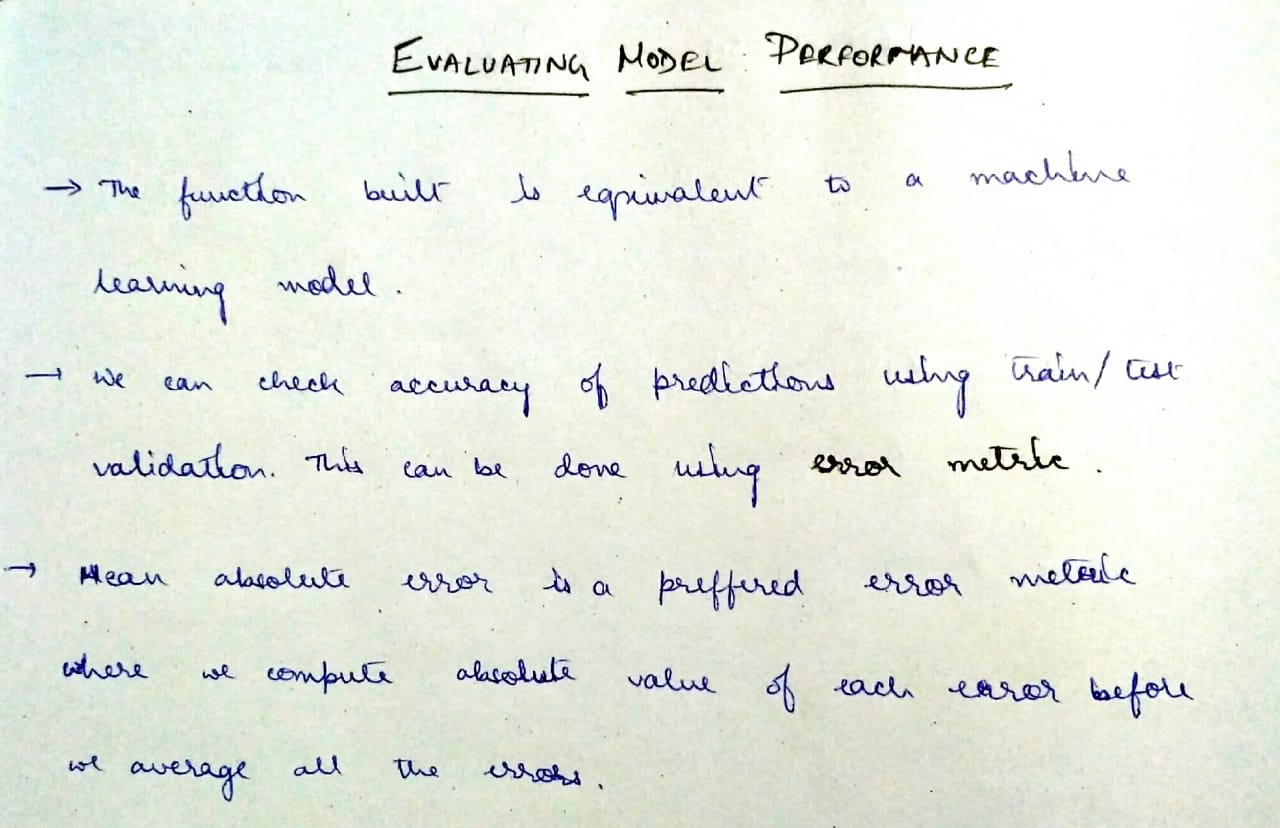 EVALUATING MODEL PERFORMANCE
→ The function built is equivalent to a machine
learning model.
→ We can check accuracy of predictions using train/test
validation. This can be done using error metric.
→ Mean absolute error is a preffered error metric
where we compute absolute value of each error before
we average all the errors.